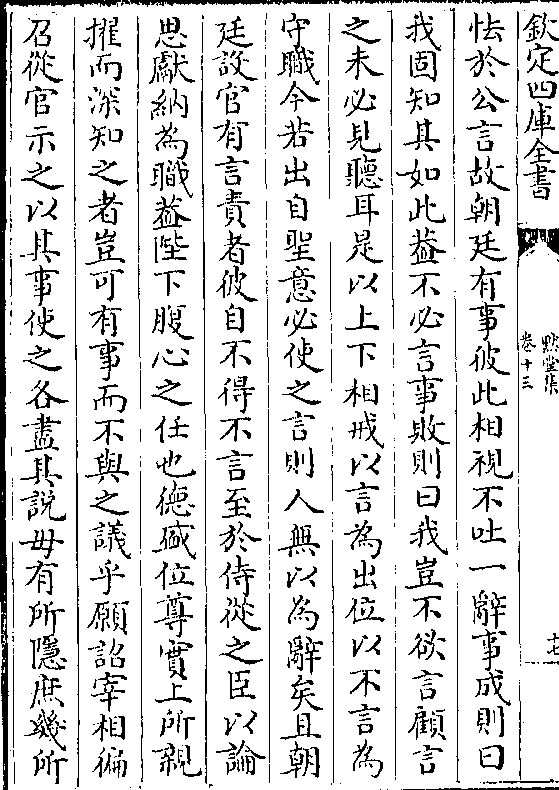 欽定四庫全書
默堂集
卷十三
十七
怯於公言故朝廷有事彼此相視不吐一辭事成則曰
我固知其如此葢不必言事敗則曰我豈不欲言顧言
之未必見聽耳是以上下相戒以言為出位以不言為
守職今若出自聖意必使之言則人無以為辭矣且朝
廷設官有言責者彼自不得不言至於侍從之臣以論
思獻納為職葢陛下腹心之任也德盛位尊實上所親
擢而深知之者豈可有事而不與之議乎願詔宰相徧
召從官示之以其事使之各盡其說毋有所隱庶幾所